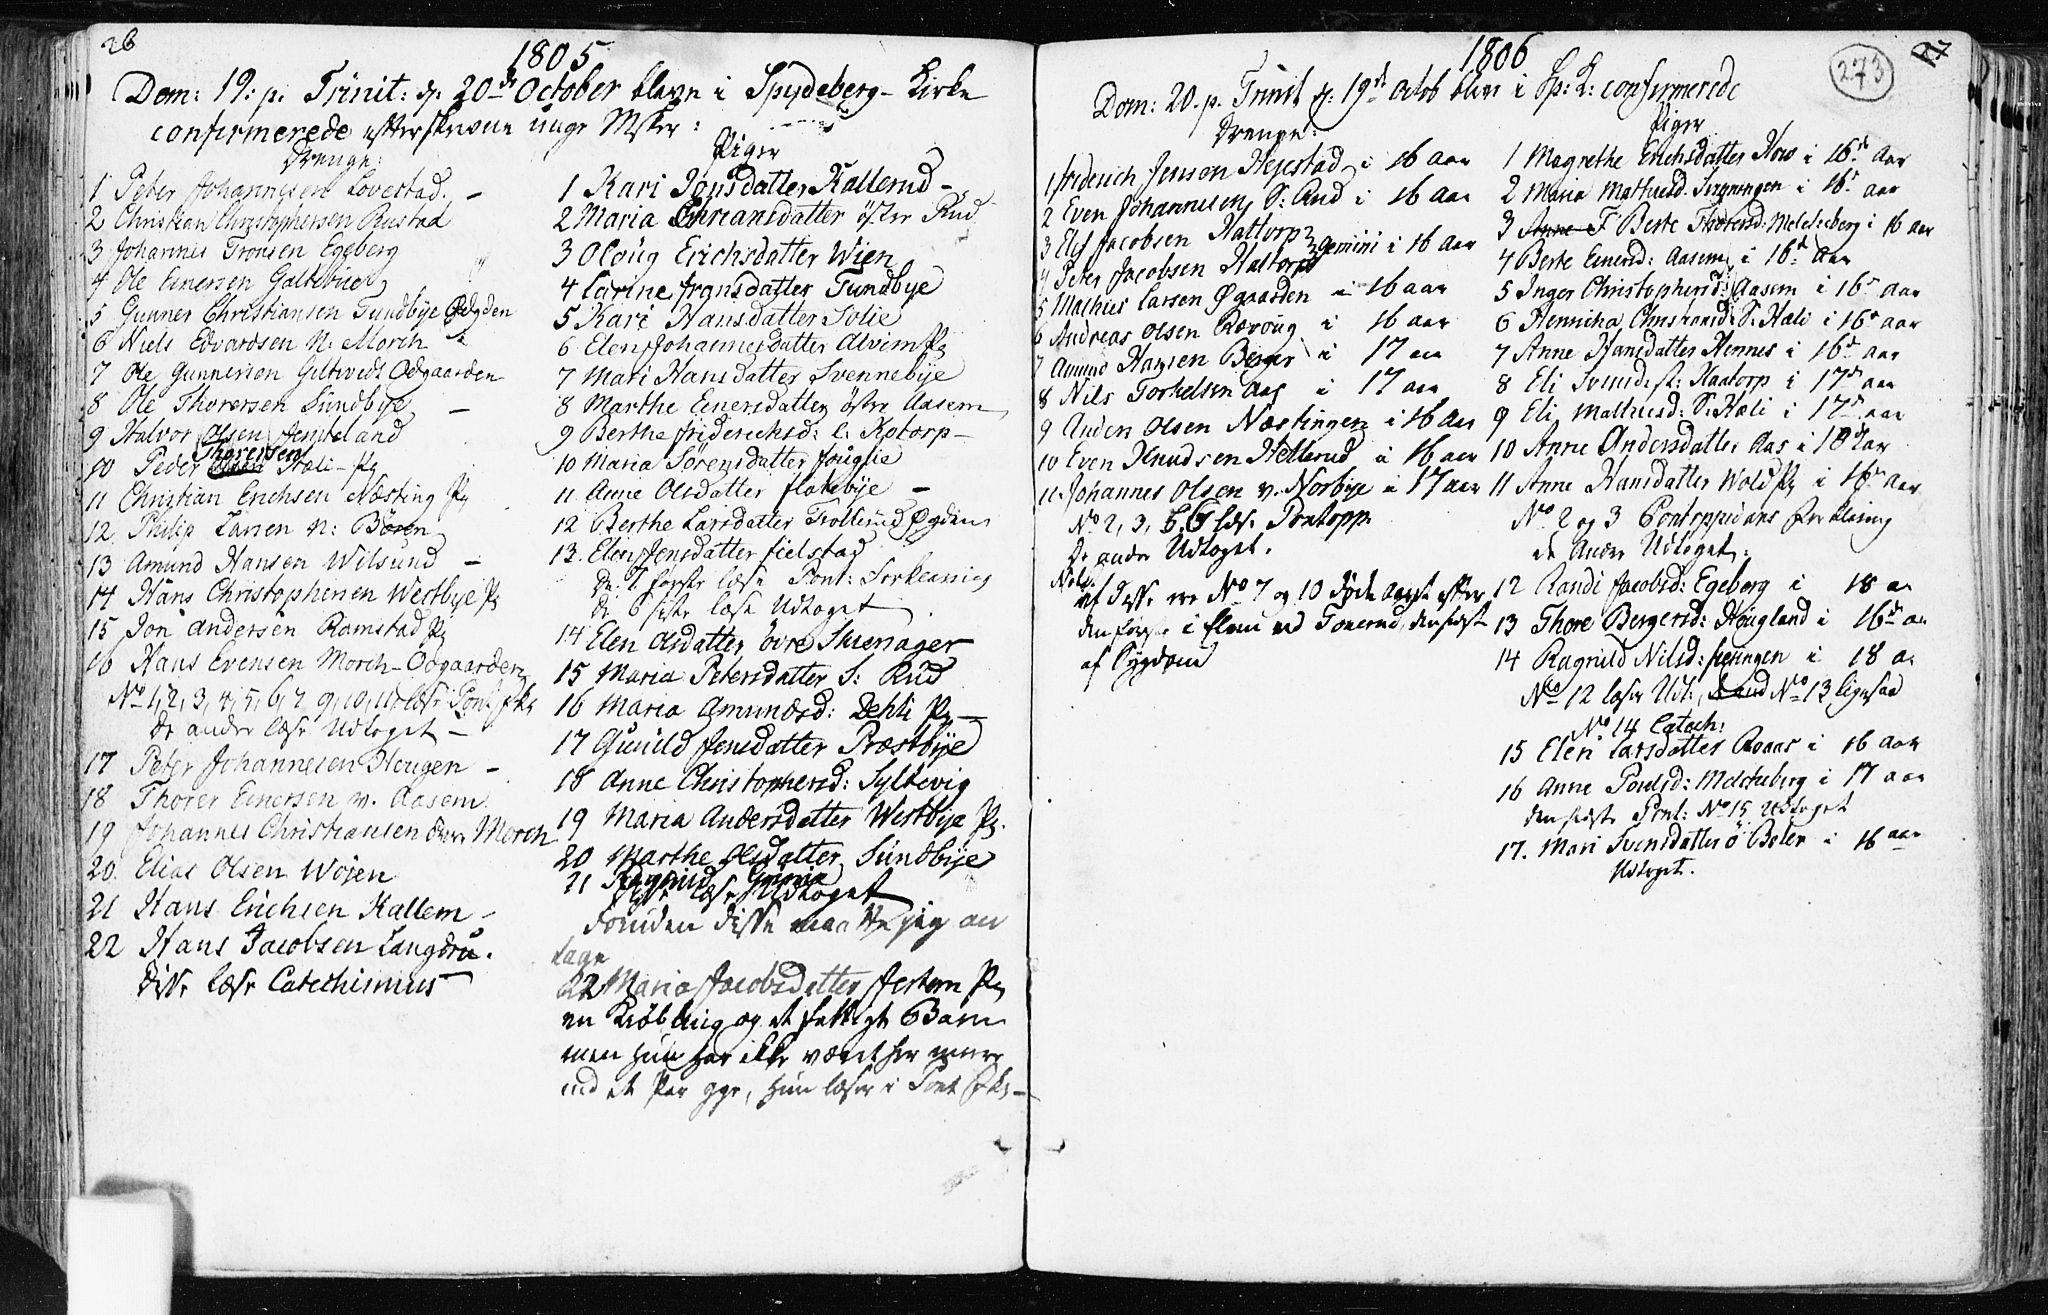 26
1805
Dom: 19: p. Trinit: d. 20de October bleve i Spydeberg Kirke
confirmerede efterskrevne unge Msker:
Drenge:
1 Peter Johannesen Lovestad. –
2 Christian Christophersen Rustad
3 Johannes Tronsen Egeberg
4 Ole Einersen
5 Gunner Christiansen Sundbye
6 Niels Edvardsen N: Morch
7 Ole Gunnersen Odgaarden
8 Ole Thorersen Sundbye –
9 Halvor Olsen
Thorersen
10 Peder Olsen Hæli – Pg
11 Christian Erichsen Næsting Pg
12 Philip Larsen N: Bören
13 Amund Hansen Wilsund –
14 Hans Christophersen Westbye Pg
15 Jon Andersen Ramstad Pg
16 Hans Evensen Morch – Odgaarden
No 1, 2, 3, 4, 5, 6, 7, 9, 10, 11 læse Pont. Fk
de andre læse Udtoget –
17 Peter Johannesen Hougen –
18 Thorer Einersen v. Aasem
19 Johannes Christiansen övre Morch
20. Elias Olsen Wöjen
21 Hans Erichsen Kallem –
22 Hans Jacobsen Langdru.
disse læse Catechismus
Piger
1 Kari Jonsdatter Kallerud –
2 Maria Christiansdatter östre Rud
3 Oloug Erichsdatter Wien
4 Carine Fransdatter Sundbye
5 Kari Hansdatter Solie
6 Elen Johannesdatter Alvim Pg
7 Mari Hansdatter Svennebye
8 Marthe Einersdatter östre Aasem
9 Berthe Friderichsd: l: Kotorp –
10 Maria Sörensdatter Fouglie
11 Anne Olsdatter Flatebye –
12 Berthe Larsdatter Trollerud
13. Elen Jensdatter Fielstad
De 7 förste læse Pont: Forklaring
de 6 siste læse Udtoget
14 Elen Olsdatter övre Skrenager
15 Maria Petersdatter S: Rud
16 Maria Amundsd: Dehli Pg –
17 Gunild Jensdatter Præstbye
18 Anne Christophersd: Syltevig
19 Maria Andersdatter Westbye Pg.
20 Marthe Olsdatter Sundbye
21 Ragnild
disse læse Udtoget
Foruden disse maatte jeg an
tage
22 Maria Jacobsdatter Pg
en Kröbling og et fattigt Barn
men hun har ikke været her mere
end et Par gge, hun læser i Pont Fk –
1806
273
27
Dom: 20. p. Trinit d: 19de Octob blev i Sp: K: confirmerede
Drenge:
1 Friderich Jenson Hejestad i 16 aar
2 Even Johannesen S: Rud i 16 aar
3 Elef Jacobsen Hattorp
4 Peter Jacobsen Hattorp } gemini i 16 aar
5 Mathies Larsen Øgaarden i 16 aar
6 Andreas Olsen i 16 aar
7 Amund Hansen Berger i 17 aar
8 Nils Torkelsen Aas i 17 aar
9 Anders Olsen Næstingen i 16 aar
10 Even Knudsen Hellerud i 16 aar
11 Johannes Olsen v. Norbye i 17 aar
No 2, 3, 5, 6 læs. Pontopp
De andre Udtoget.
Nota
af disse ere No 7 og 10 döde aaret efter
den förste i ved den sidste
af Sygdom
Piger
1 Magrethe Erichsdatter How i 16 de Aar
2 Maria Mathiesd. i 16 de aar
3 Anne F Berte Thorersd: Melcheberg i 16 aar
4 Berte Einersd: Aasem i 16 de aar
5 Inger Christophersd: Aasem i 16 de aar
6 Hennika Christiansd: S: Hæli i 16 de aar
7 Anne Hansdatter Hennes i 16 de aar
8 Eli Svendsd: Haatorp i 17 de aar
9 Eli Mathiesd: S: Hæli i 17 de aar
10 Anne Andersdatter Aas i 18 de aar
11 Anne Hansdatter Wold Pg i 16 de aar
No 2 og 3 Pontoppidans Forklaring
de Andre Udtoget.
12 Randi Jacobsd: Egeberg i 18 a
13 Thore Bergersd: Hougland i 16 de a
14 Ragnild Nilsd: i 18 a
No 12 læser Udt: No 13 ligesaa
No 14 Catech:
15 Elen Larsdatter Raaas i 16 aar
16 Anne Poulsd: Melcheberg i 17 aar
den sidste Pont: No 15 Udtoget
17. Mari Svensdatter Ö Boler i 16 aar
Udtoget.